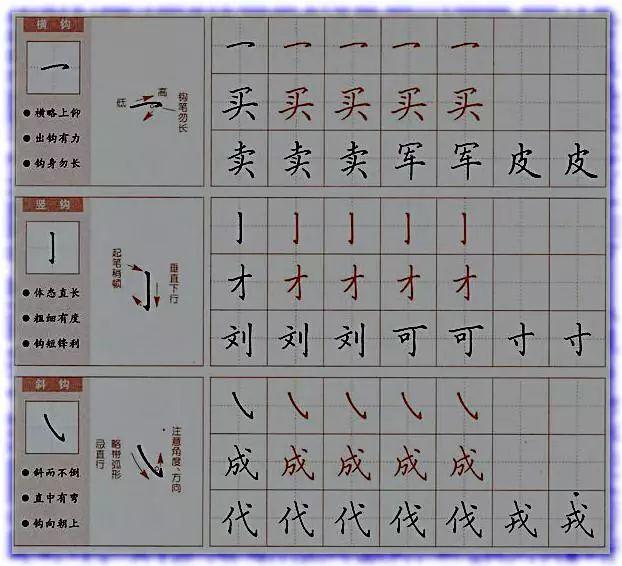 横钩
横略上仰
出钩有力
钩身勿长
低
高
钩笔勿长
买 买 买 买 买
卖 卖 卖 军 军 皮 皮
竖钩
体态直长
粗细有度
钩短锋利
起笔稍顿
垂直下行
亅 亅 亅 亅 亅
才 才 才 才 才
刘 刘 刘 可 可 寸 寸
斜钩
斜而不倒
直中有弯
钩向朝上
忌直行
略带弧形
注意角度、方向
成 成 成 成 成
代 代 代 伐 伐 戎 戎